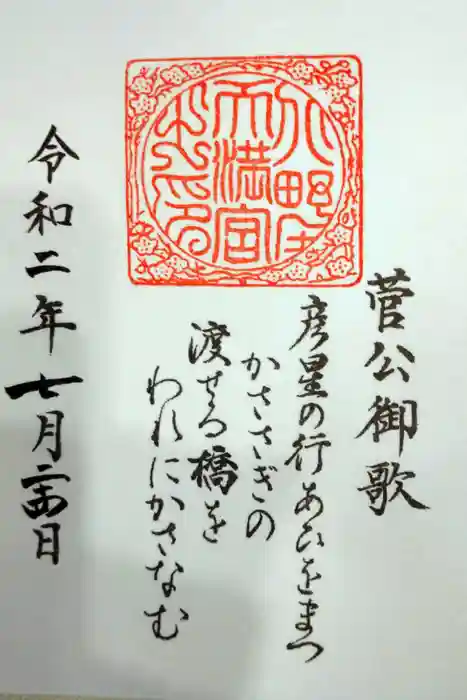 天満宮
菅公御歌
彦星の行あひをまつ
かささぎの
渡せる橋を
われにかさなむ
令和二年七月二十四日